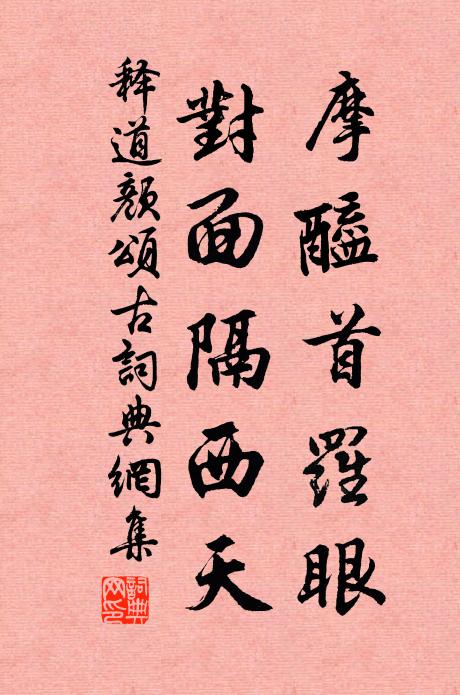 摩醯首羅眼
對面隔西天
释道顏頌古詞典網集
詞典网印